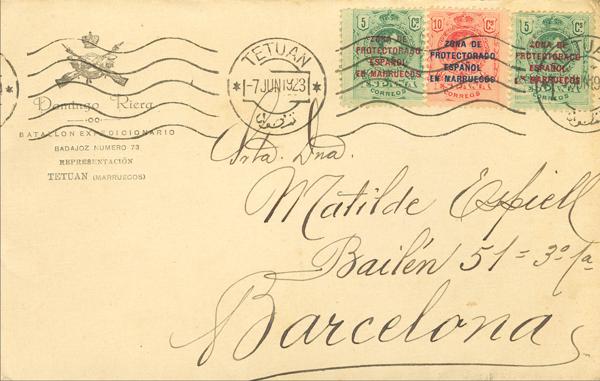 Domingo Riera
BATALLON EXPEDICIONARIO
BADAJOZ NUMERO 73
REPRESENTACIÓN
TETUAN (MARRUECOS)
TETUAN
-7 JUN 1923
5 Cs
ZONA DE
PROTECTORADO
ESPAÑOL
EN MARRUECOS
CORREOS
10 Cs
ZONA DE
PROTECTORADO
ESPAÑOL
EN MARRUECOS
CORREOS
5 Cs
ZONA DE
PROTECTORADO
ESPAÑOL
EN MARRUECOS
CORREOS
Srta. Dna.
Matilde Espiell
Bailén 51 = 3º 1ª
Barcelona